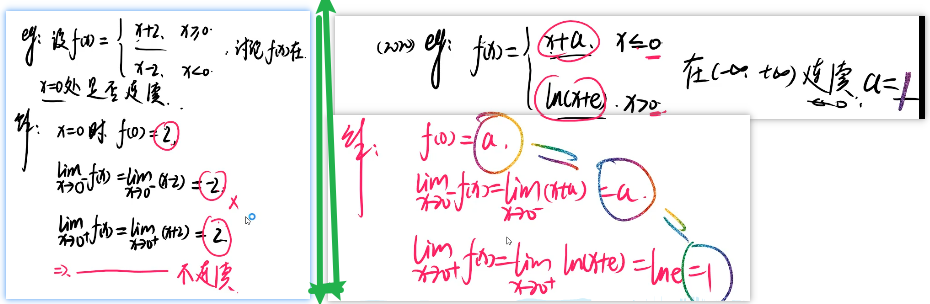 eg: 设f(x)= { x+2、 x≥0. , 讨论f(x)在
x-2、 x<0.
x=0处是否连续.
解: x=0时. f(0)=2,
lim x→0⁻ f(x)=lim x→0⁻ (x-2)=-2, ×
lim x→0⁺ f(x)=lim x→0⁺ (x+2)=2,
=> 不连续
(2020) eg: f(x)= { x+a、 x≤0
ln(x+e). x>0 在(-∞, +∞)连续, a=1
解: f(0)=a.
lim x→0⁻ f(x)=lim x→0⁻ (x+a)=a.
lim x→0⁺ f(x)=lim x→0⁺ ln(x+e)=lne=1